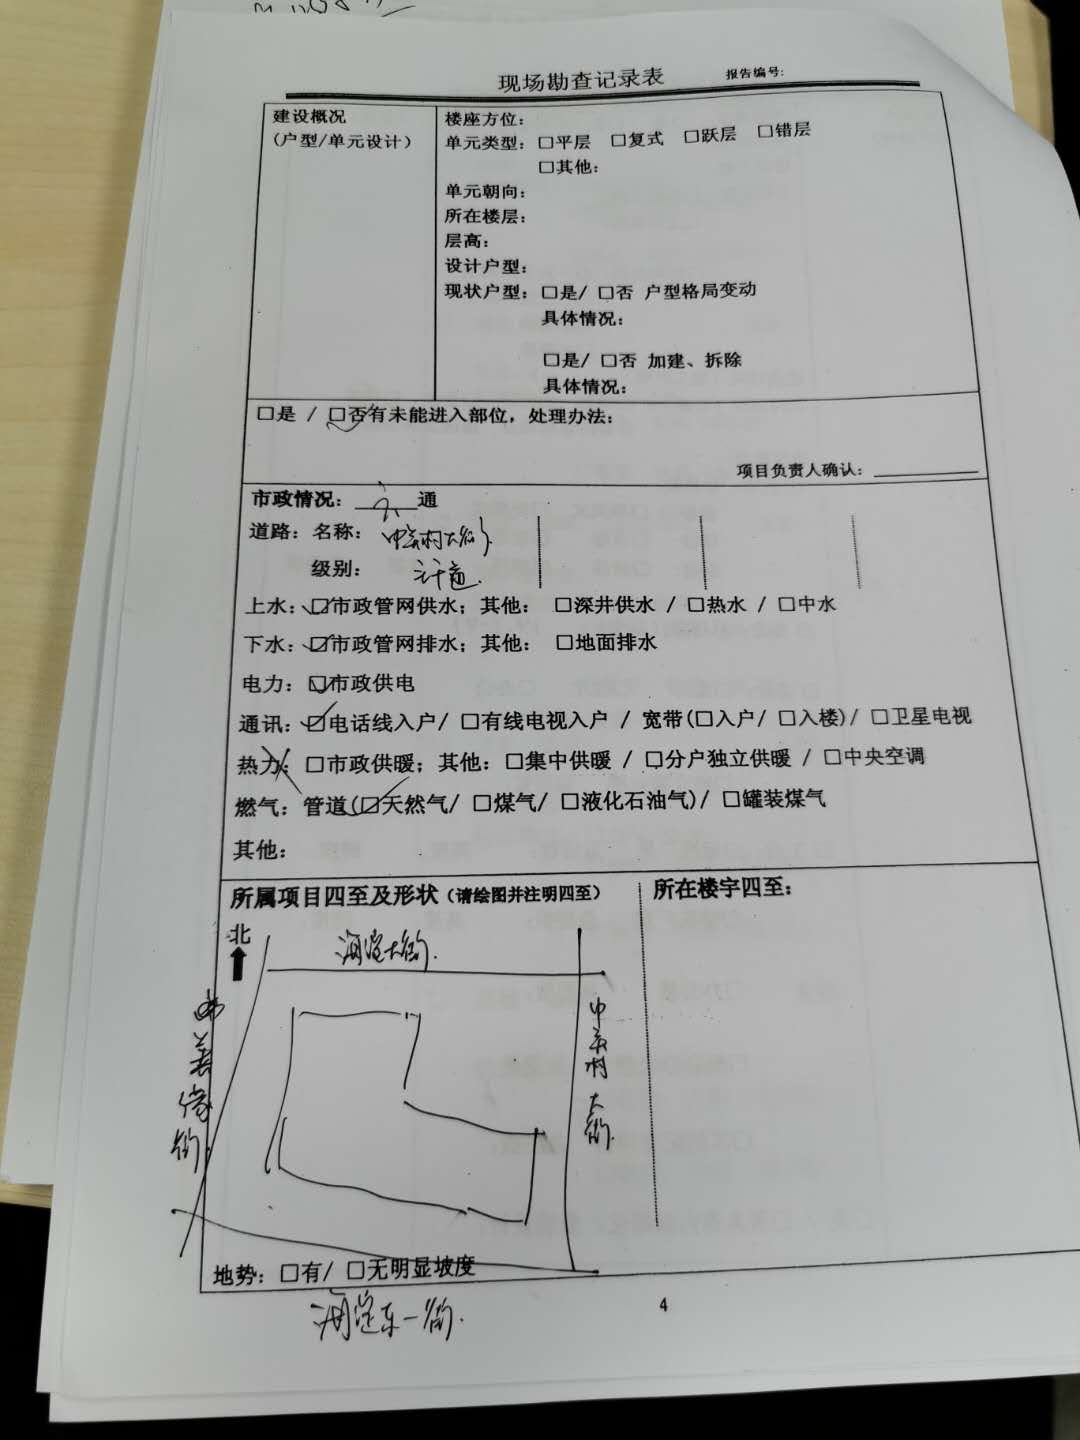 现场勘查记录表 报告编号:
建设概况
(户型/单元设计)
楼座方位:
单元类型: □平层 □复式 □跃层 □错层
□其他:
单元朝向:
所在楼层:
层高:
设计户型:
现状户型: □是/ □否 户型格局变动
具体情况:
□是/ □否 加建、拆除
具体情况:
□是 / □否有未能进入部位, 处理办法:
项目负责人确认:
市政情况: 六 通
道路: 名称: 中关村大街
级别:
上水: ☑市政管网供水; 其他: □深井供水 / □热水 / □中水
下水: ☑市政管网排水; 其他: □地面排水
电力: ☑市政供电
通讯: ☑电话线入户/ □有线电视入户 / 宽带(□入户/ □入楼)/ □卫星电视
热力: □市政供暖; 其他: □集中供暖 / □分户独立供暖 / □中央空调
燃气: 管道(☑天然气/ □煤气/ □液化石油气)/ □罐装煤气
其他:
所属项目四至及形状(请绘图并注明四至)
所在楼宇四至:
北
海淀大街
中关村大街
地势: □有/ □无明显坡度
海淀东一街
4